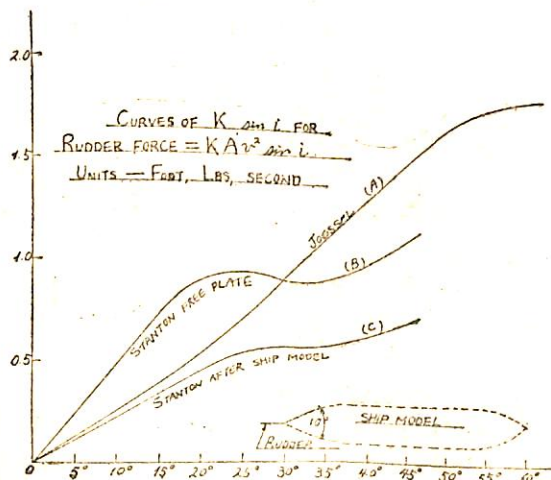 2.0
CURVES OF K sin i FOR
RUDDER FORCE = KAv² sin i
UNITS — FOOT, LBS, SECOND
1.5
JOESSEL (A)
1.0
(B)
STANTON FREE PLATE
(C)
0.5
STANTON AFTER SHIP MODEL
SHIP MODEL
10
RUDDER
0 5° 10° 15° 20° 25° 30° 35° 40° 45° 50° 55° 60°